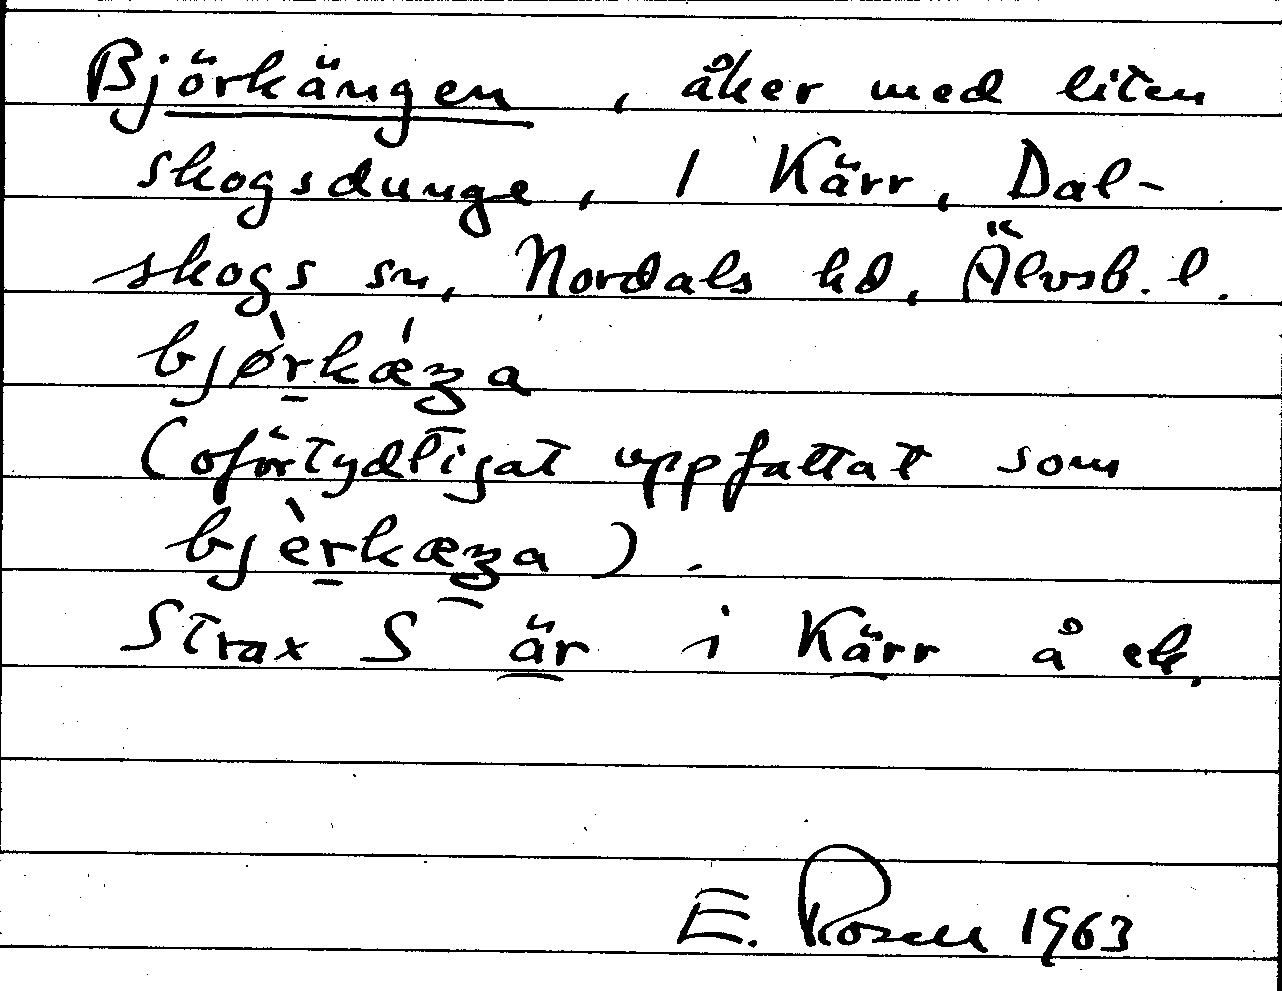 Björkängen, åker med liten
skogsdunge, 1 Kärr, Dal-
skogs sn, Nordals hd, Älvsb. l.
bjø̀rkǽŋa
(oförtydligat uppfattat som
bjèrkæŋa).
Strax S är i Kärr å ek.
E. Rosell 1963